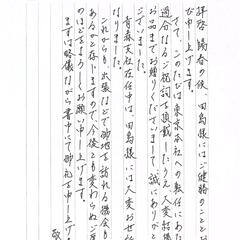 拝啓 陽春の候、田島様にはご健勝のこととと
び申し上げます。
さて、このたびは東京本社への転任にあた
過分なるご祝詞を頂戴したうえ、大変結構
お品までお贈りくださいまして、誠にありがと
いました。
青森支社在任中は、田島様には大変お世
なりました。
これからも出張などで御地を訪れる機会も
あるかと存じますので、今後とも変わらぬご厚
のほどをよろしくお願い申し上げます。
まずは略儀ながら書中にて御礼を申し上げま
敬